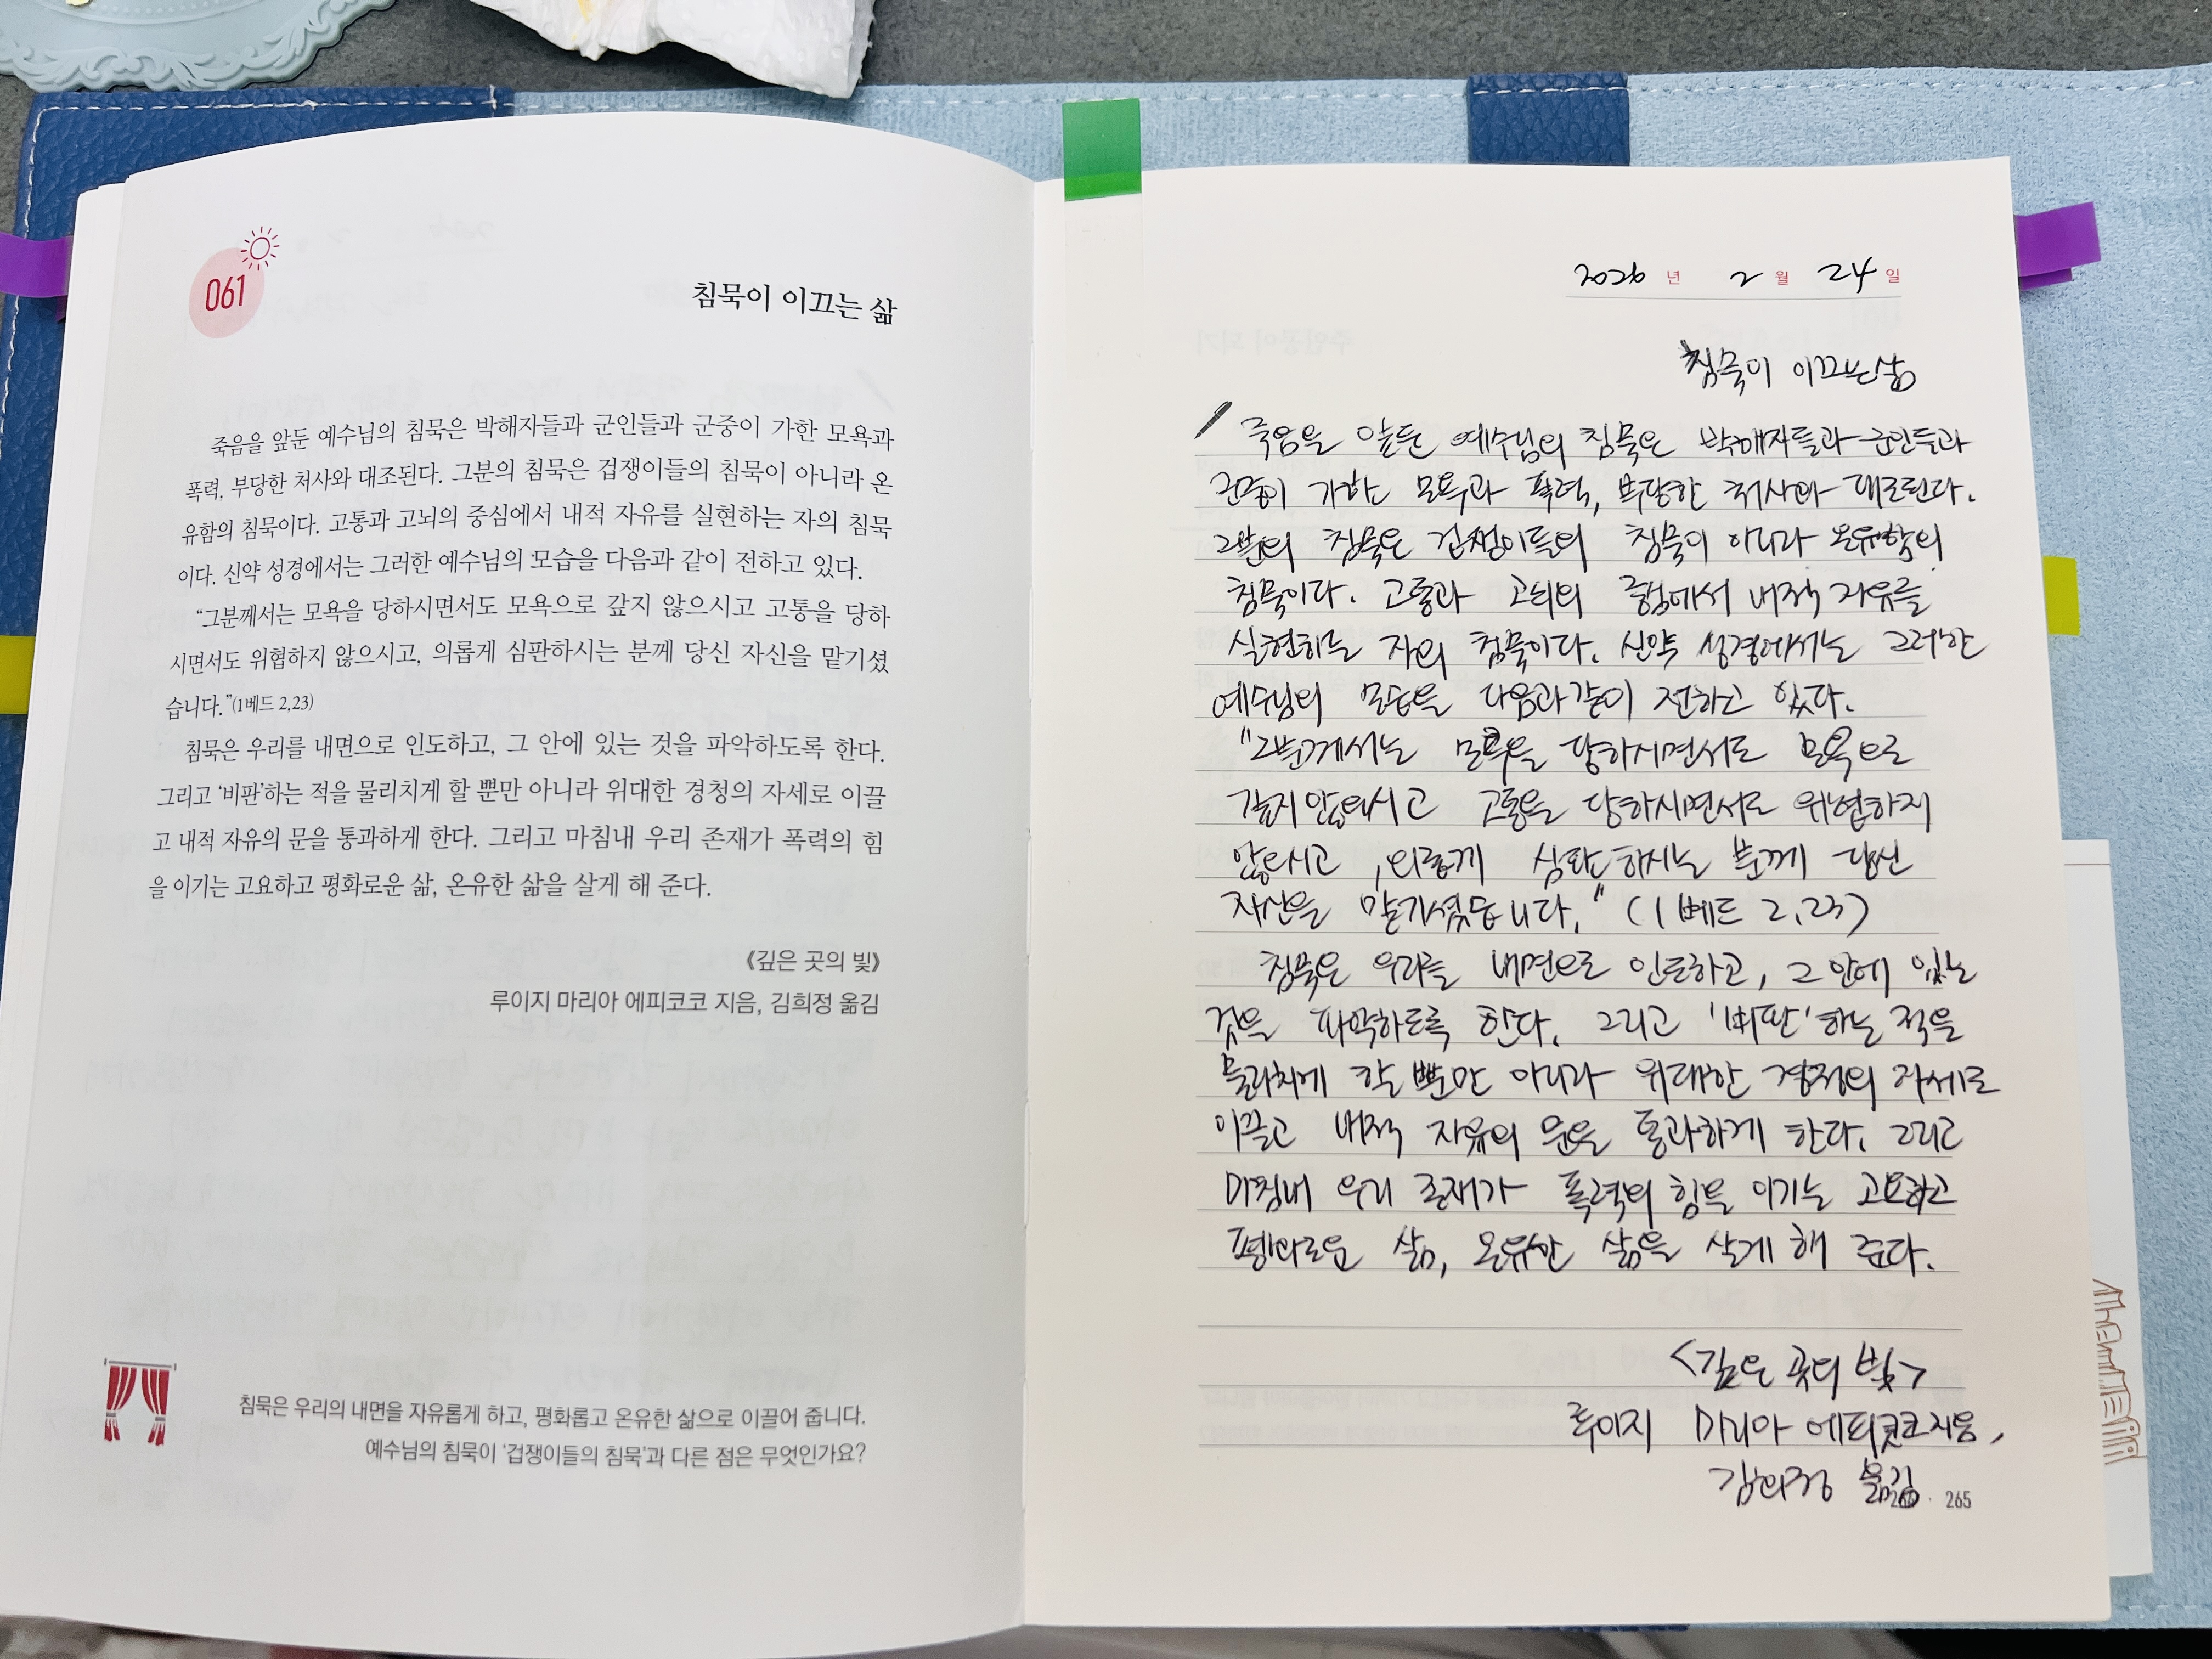 061
침묵이 이끄는 삶
죽음을 앞둔 예수님의 침묵은 박해자들과 군인들과 군중이 가한 모욕과
폭력, 부당한 처사와 대조된다. 그분의 침묵은 겁쟁이들의 침묵이 아니라 온
유함의 침묵이다. 고통과 고뇌의 중심에서 내적 자유를 실현하는 자의 침묵
이다. 신약 성경에서는 그러한 예수님의 모습을 다음과 같이 전하고 있다.
“그분께서는 모욕을 당하시면서도 모욕으로 갚지 않으시고 고통을 당하
시면서도 위협하지 않으시고, 의롭게 심판하시는 분께 당신 자신을 맡기셨
습니다.”(1베드 2,23)
침묵은 우리를 내면으로 인도하고, 그 안에 있는 것을 파악하도록 한다.
그리고 ‘비판’하는 적을 물리치게 할 뿐만 아니라 위대한 경청의 자세로 이끌
고 내적 자유의 문을 통과하게 한다. 그리고 마침내 우리 존재가 폭력의 힘
을 이기는 고요하고 평화로운 삶, 온유한 삶을 살게 해 준다.
《깊은 곳의 빛》
루이지 마리아 에피코코 지음, 김희정 옮김
침묵은 우리의 내면을 자유롭게 하고, 평화롭고 온유한 삶으로 이끌어 줍니다.
예수님의 침묵이 ‘겁쟁이들의 침묵’과 다른 점은 무엇인가요?
2026 년 2 월 24 일
침묵이 이끄는 삶
죽음을 앞둔 예수님의 침묵은 박해자들과 군인들과
군중이 가한 모욕과 폭력, 부당한 처사와 대조된다.
그분의 침묵은 겁쟁이들의 침묵이 아니라 온유함의
침묵이다. 고통과 고뇌의 중심에서 내적 자유를
실현하는 자의 침묵이다. 신약 성경에서는 그러한
예수님의 모습을 다음과 같이 전하고 있다.
"그분께서는 모욕을 당하시면서도 모욕으로
갚지 않으시고 고통을 당하시면서도 위협하지
않으시고, 의롭게 심판하시는 분께 당신
자신을 맡기셨습니다." (1 베드 2,23)
침묵은 우리를 내면으로 인도하고, 그 안에 있는
것을 파악하도록 한다. 그리고 '비판'하는 적을
물리치게 할 뿐만 아니라 위대한 경청의 자세로
이끌고 내적 자유의 문을 통과하게 한다. 그리고
마침내 우리 존재가 폭력의 힘을 이기는 고요하고
평화로운 삶, 온유한 삶을 살게 해 준다.
<깊은 곳의 빛>
루이지 마리아 에피코코 지음,
김희정 옮김
265